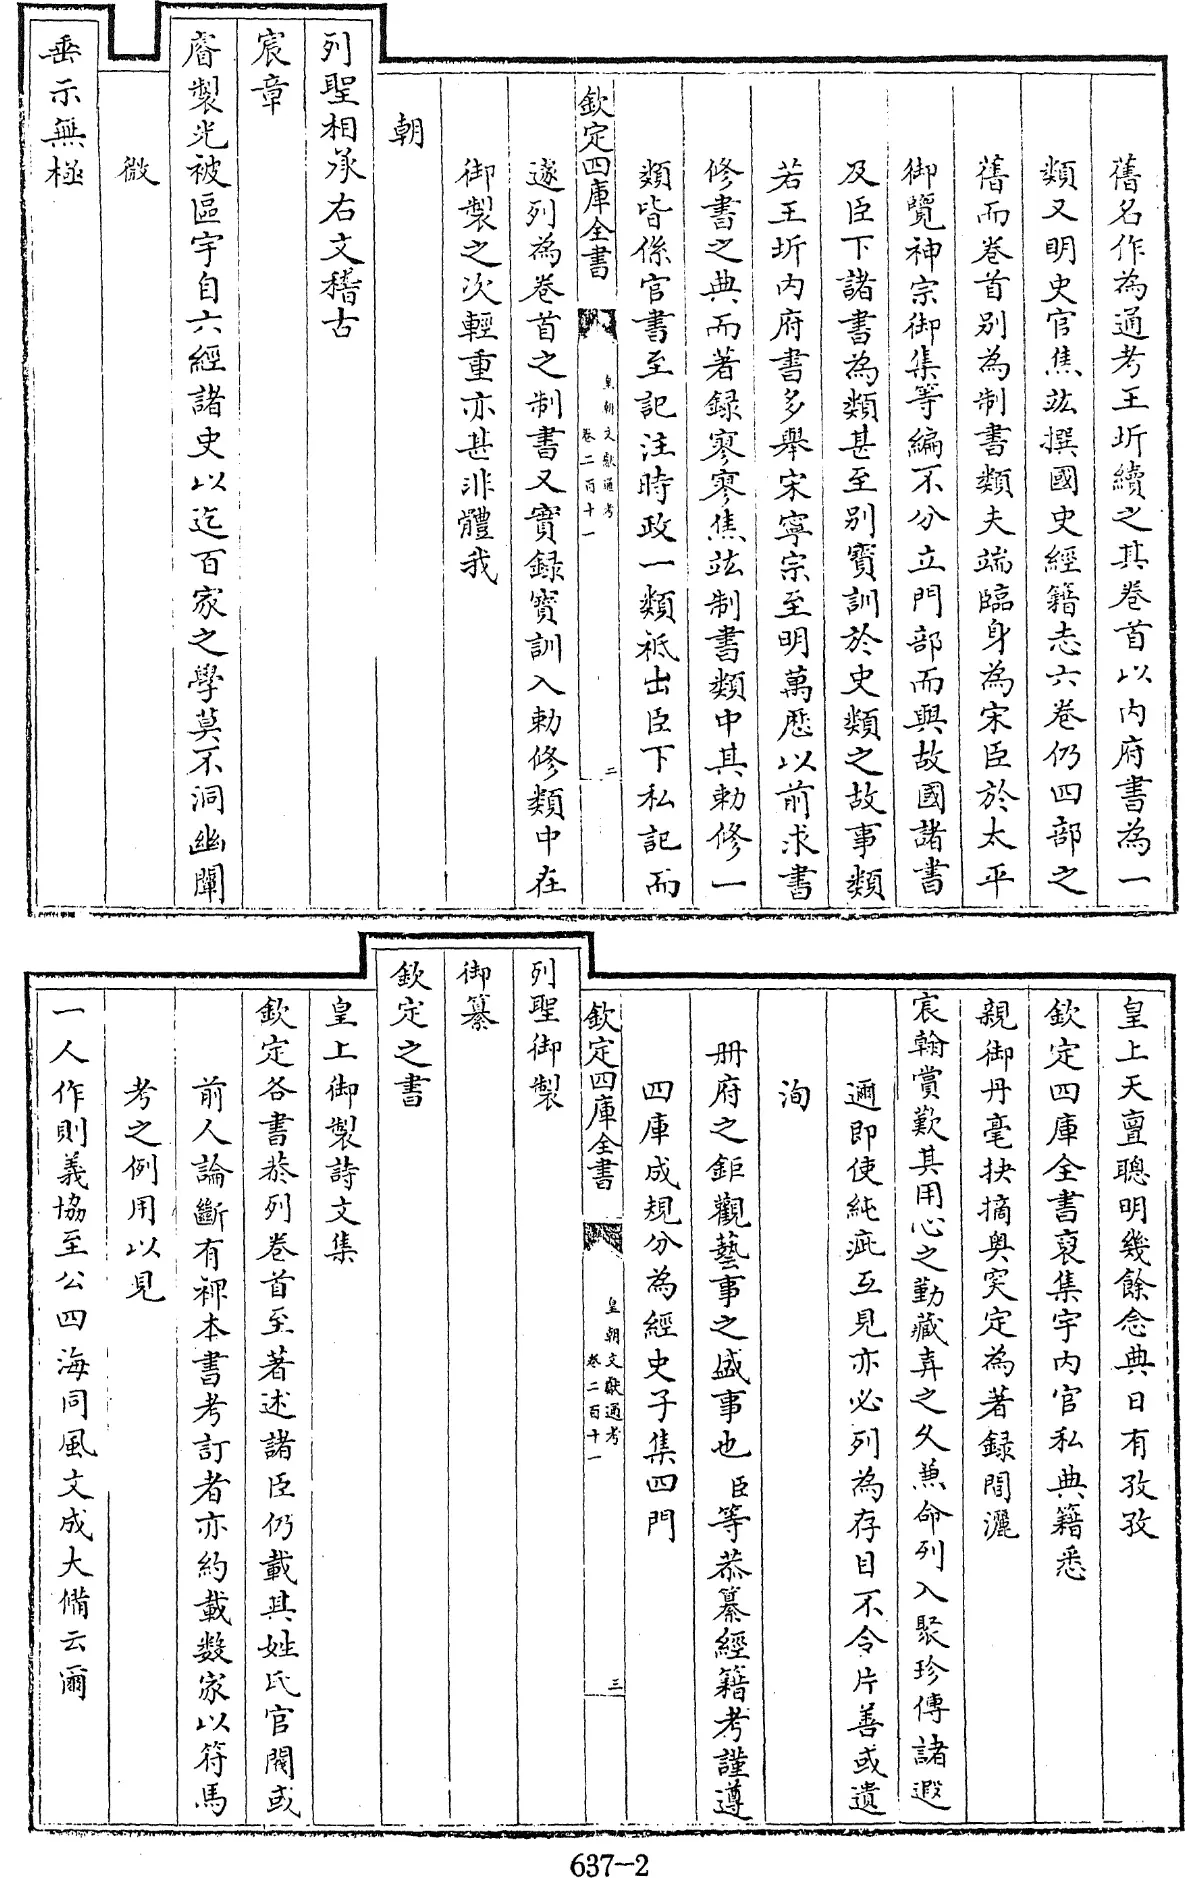 舊名作為通考王圻續之其卷首以内府書為一
類又明史官焦竑撰國史經籍志六卷仍四部之
舊而卷首别為制書類夫端臨身為宋臣於太平
御覽神宗御集等編不分立門部而與故國諸書
及臣下諸書為類甚至别寳訓於史類之故事類
若王圻内府書多舉宋寧宗至明萬厯以前求書
修書之典而著録寥寥焦竑制書類中其勅修一
類皆係官書至記注時政一類祗出臣下私記而
欽定四庫全書
皇朝文獻通考
卷二百十一
二
遂列為卷首之制書又實録寳訓入勅修類中在
御製之次輕重亦甚非體我
朝
列聖相承右文稽古
宸章
睿製光被區宇自六經諸史以迄百家之學莫不洞幽闡
微
垂示無極
皇上天亶聰明幾餘念典日有孜孜
欽定四庫全書裒集宇内官私典籍悉
親御丹毫抉摘奥突定為著録間灑
宸翰賞歎其用心之勤藏弆之久兼命列入聚珍傳諸遐
邇即使純疵互見亦必列為存目不令片善或遺
洵
冊府之鉅觀藝事之盛事也臣等恭纂經籍考謹遵
四庫成規分為經史子集四門
欽定四庫全書
皇朝文獻通考
卷二百十一
三
列聖御製
御纂
欽定之書
皇上御製詩文集
欽定各書恭列卷首至著述諸臣仍載其姓氏官閥或
前人論斷有裨本書考訂者亦約載數家以符馬
考之例用以見
一人作則義協至公四海同風文成大備云爾
637-2